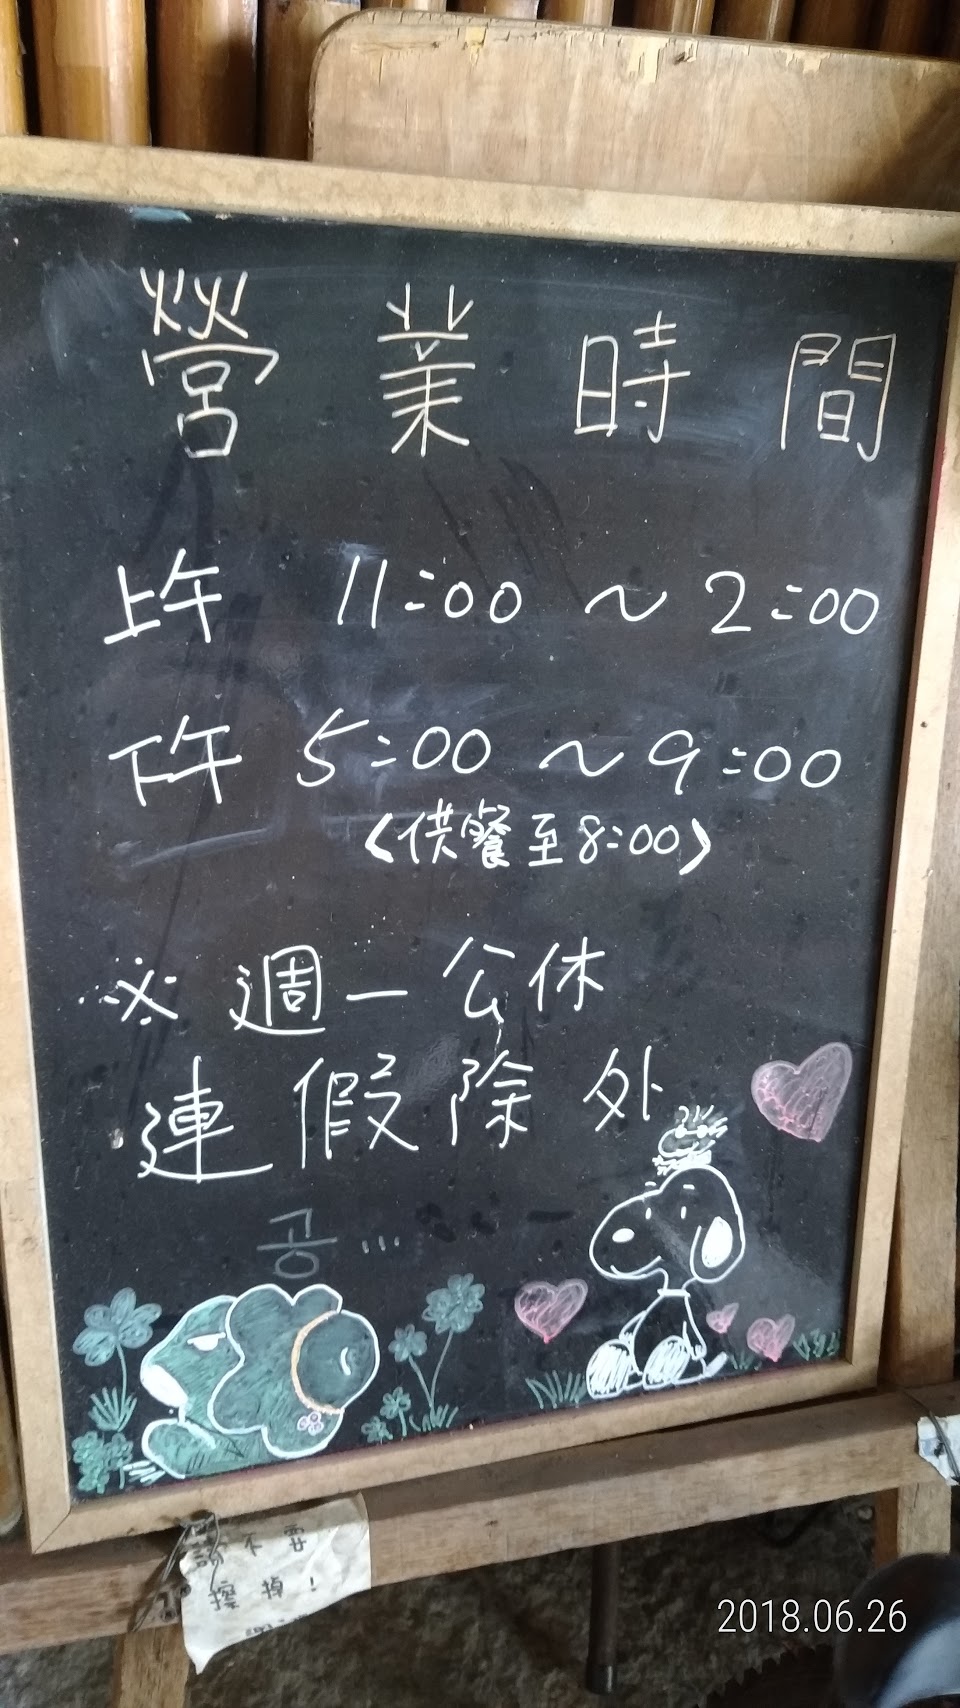 營業時間
上午 11:00 ~ 2:00
下午 5:00 ~ 9:00
〈供餐至8:00〉
※週一公休
連假除外
공...
請不要
擦掉!
2018.06.26